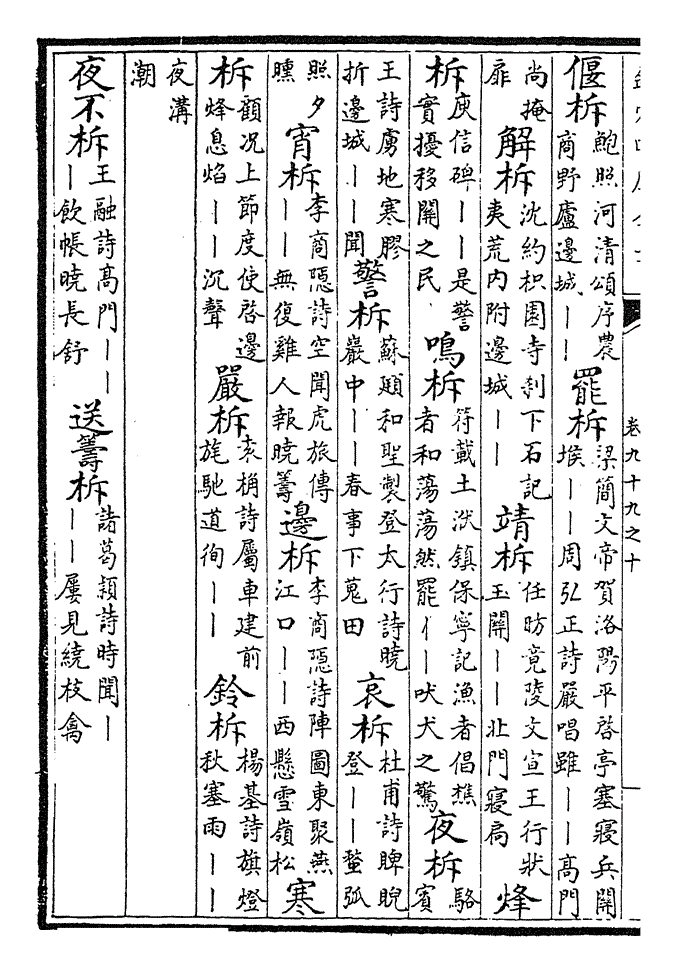 卷九十九之十
偃柝鮑照河清頌序農商野廬邊城丨丨罷柝梁簡文帝賀洛陽平啓亭塞寢兵關堠丨丨周弘正詩嚴唱雖丨丨高門
尚掩扉解柝沈約枳園寺刹下石記夷荒内附邊城丨丨靖柝任昉竟陵文宣王行狀玉關丨丨北門寢扃烽
柝庾信碑丨丨是警實擾移關之民鳴柝符載土洑鎮保寧記漁者倡樵者和蕩蕩然罷丨丨吠犬之驚夜柝駱賓
王詩虜地寒膠折邊城丨丨聞警柝蘇頲和聖製登太行詩曉嚴中丨丨春事下蒐田哀柝杜甫詩睥睨登丨丨蝥弧
照夕曛宵柝李商隱詩空聞虎旅傳丨丨無復雞人報曉籌邊柝李商隱詩陣圖東聚燕江口丨丨西懸雪嶺松寒
柝顧况上節度使啓邊烽息焰丨丨沉聲嚴柝袁桷詩屬車建前旄馳道徇丨丨鈴柝楊基詩旗燈秋塞雨丨丨
夜溝潮
夜不柝王融詩高門丨丨丨飲帳曉長舒送籌柝諸葛穎詩時聞丨丨丨屢見繞枝禽